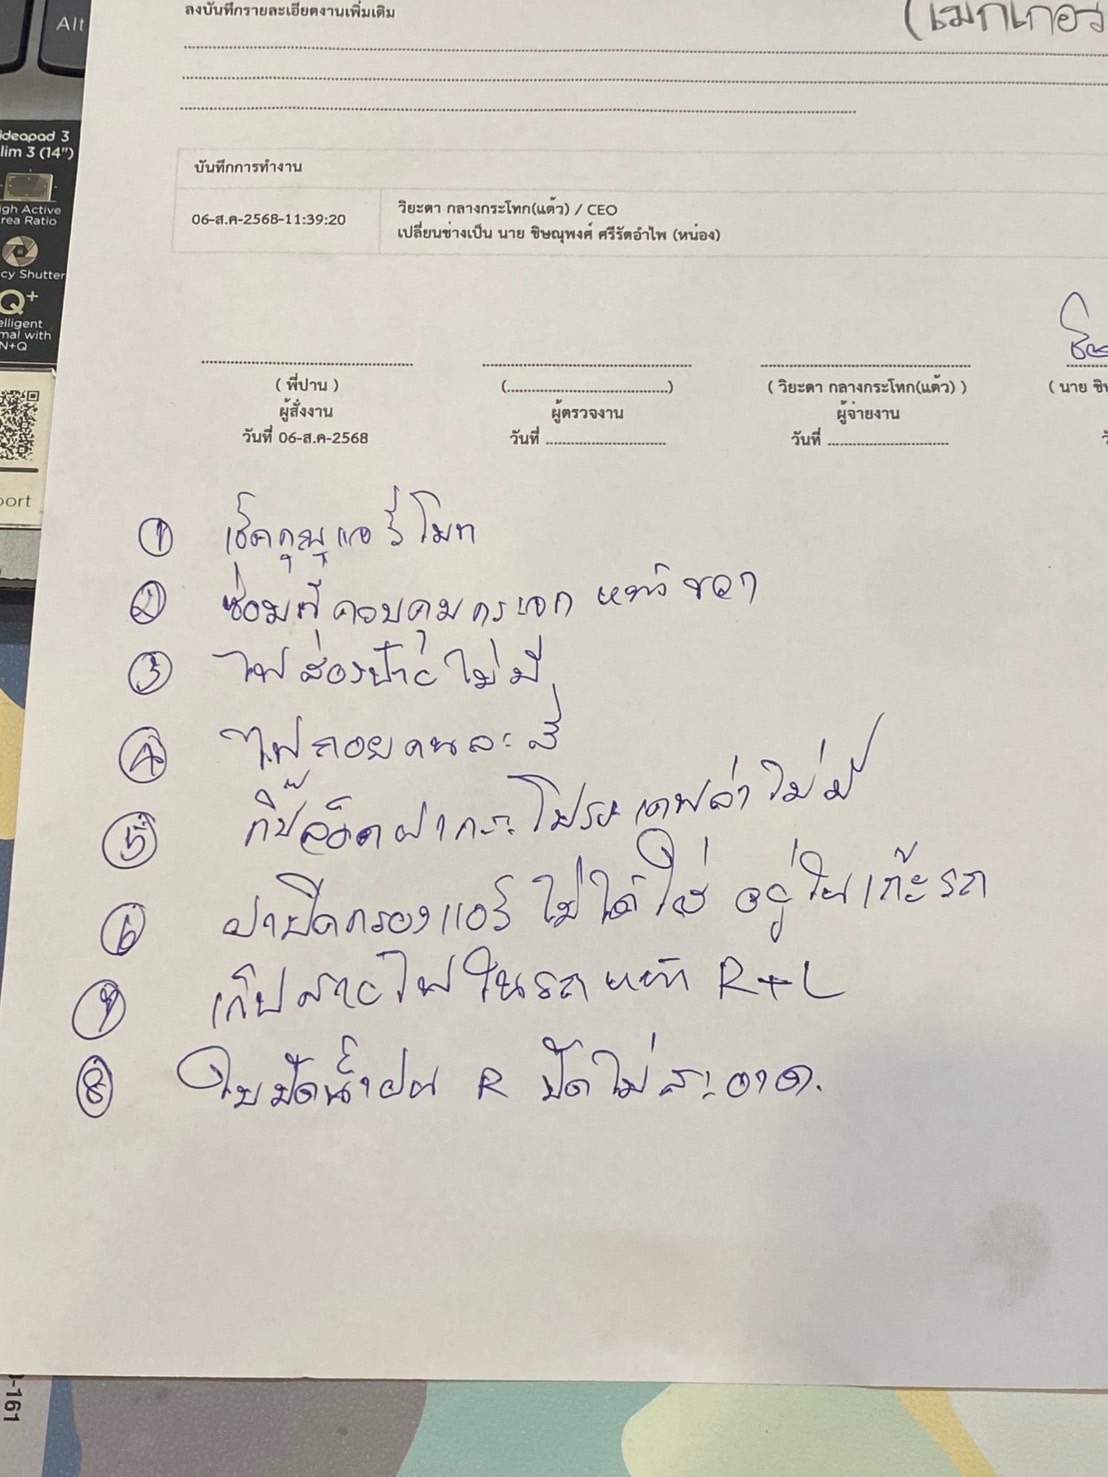 Alt
ลงบันทึกรายละเอียดงานเพิ่มเติม
(เมกเกอร
ideapad 3
lim 3 (14")
igh Active
rea Ratio
cy Shutter
Q+
elligent
mal with
N+Q
port
บันทึกการทำงาน
06-ส.ค-2568-11:39:20
วิยะดา กลางกระโทก(แต้ว) / CEO
เปลี่ยนช่างเป็น นาย ชิษณุพงศ์ ศรีรัตอำไพ (หน่อง)
( พี่ปาน )
ผู้สั่งงาน
วันที่ 06-ส.ค-2568
(..................................)
ผู้ตรวจงาน
วันที่ .........................
( วิยะดา กลางกระโทก(แต้ว) )
ผู้จ่ายงาน
วันที่ .........................
( นาย ชิษ
① เช็คกุญแจรีโมท
② ซ่อมที่ควบคุมกระจก หน้าขวา
③ ไฟส่องป้ายไม่มี
④ ไฟถอยคนละสี
⑤ กิ๊ปล็อคฝากระโปรง ไม่มี
⑥ ฝาปิดกรองแอร์ ไม่ได้ใส่ อยู่ในเก๊ะรถ
⑦ เก็บสายไฟในรถหน้า R+L
⑧ ใบปัดน้ำฝน R ปัดไม่สะอาด.
-161